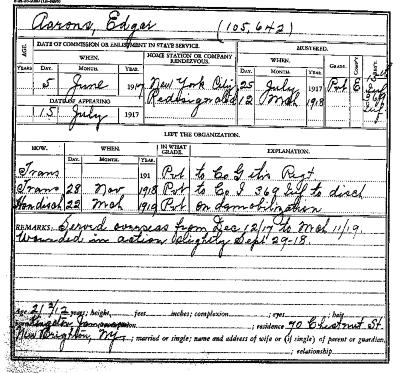 Aarons, Edgar (105,642)
AGE. DATE OF COMMISSION OR ENLISTMENT IN STATE SERVICE. HOME STATION OR COMPANY RENDEZVOUS. MUSTERED. GRADE. COMP'Y REG'T.
WHEN. WHEN.
YEARS DAY. MONTH. YEAR. DAY. MONTH. YEAR.
5 June 1917 New York City 25 July 1917 Pvt E
DATE OF APPEARING Redesignated 12 Mch 1918
15 July 1917
LEFT THE ORGANIZATION.
HOW. WHEN. IN WHAT GRADE. EXPLANATION.
DAY. MONTH. YEAR.
Trans 191 Pvt to Co G this Regt
Trans 28 Nov 1918 Pvt to Co I 369 Inf to disch
Hon disch 22 Mch 1919 Pvt on demobilization
REMARKS: Served overseas from Dec 12/17 to Mch 11/19.
Wounded in action slightly Sept 29-18.
Age 21 2/12 years; height, feet inches; complexion ; eyes ; hair
Kingston Jamaica ; residence 70 Chestnut St.
New Brighton, NY ; married or single; name and address of wife or (if single) of parent or guardian,
; relationship